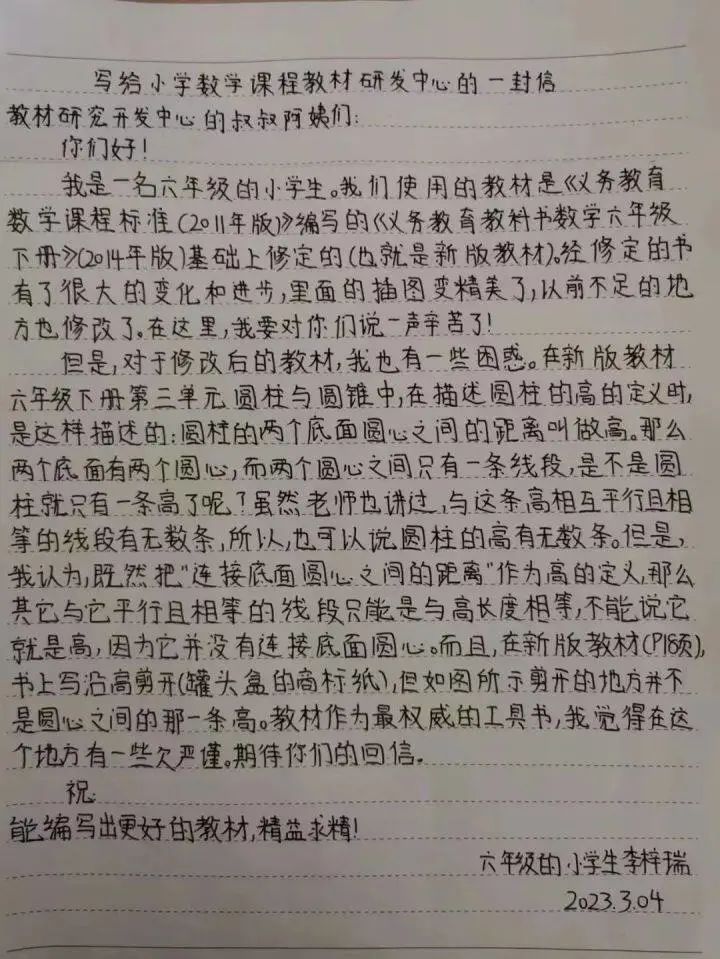 写给小学数学课程教材研发中心的一封信
教材研究开发中心的叔叔阿姨们:
你们好!
我是一名六年级的小学生。我们使用的教材是《义务教育
数学课程标准(2011年版)》编写的《义务教育教科书数学六年级
下册》(2014年版)基础上修定的(也就是新版教材)。经修定的书
有了很大的变化和进步,里面的插图变精美了,以前不足的地
方也修改了。在这里,我要对你们说一声辛苦了!
但是,对于修改后的教材,我也有一些困惑。在新版教材
六年级下册第三单元圆柱与圆锥中,在描述圆柱的高的定义时,
是这样描述的:圆柱的两个底面圆心之间的距离叫做高。那么
两个底面有两个圆心,而两个圆心之间只有一条线段,是不是圆
柱就只有一条高了呢?虽然老师也讲过,与这条高相互平行且相
等的线段有无数条,所以,也可以说圆柱的高有无数条。但是,
我认为,既然把"连接底面圆心之间的距离"作为高的定义,那么
其它与它平行且相等的线段只能是与高长度相等,不能说它
就是高,因为它并没有连接底面圆心。而且,在新版教材(P18页),
书上写沿高剪开(罐头盒的商标纸),但如图所示剪开的地方并不
是圆心之间的那一条高。教材作为最权威的工具书,我觉得在这
个地方有一些欠严谨。期待你们的回信。
祝
能编写出更好的教材,精益求精!
六年级的小学生李梓瑞
2023.3.04